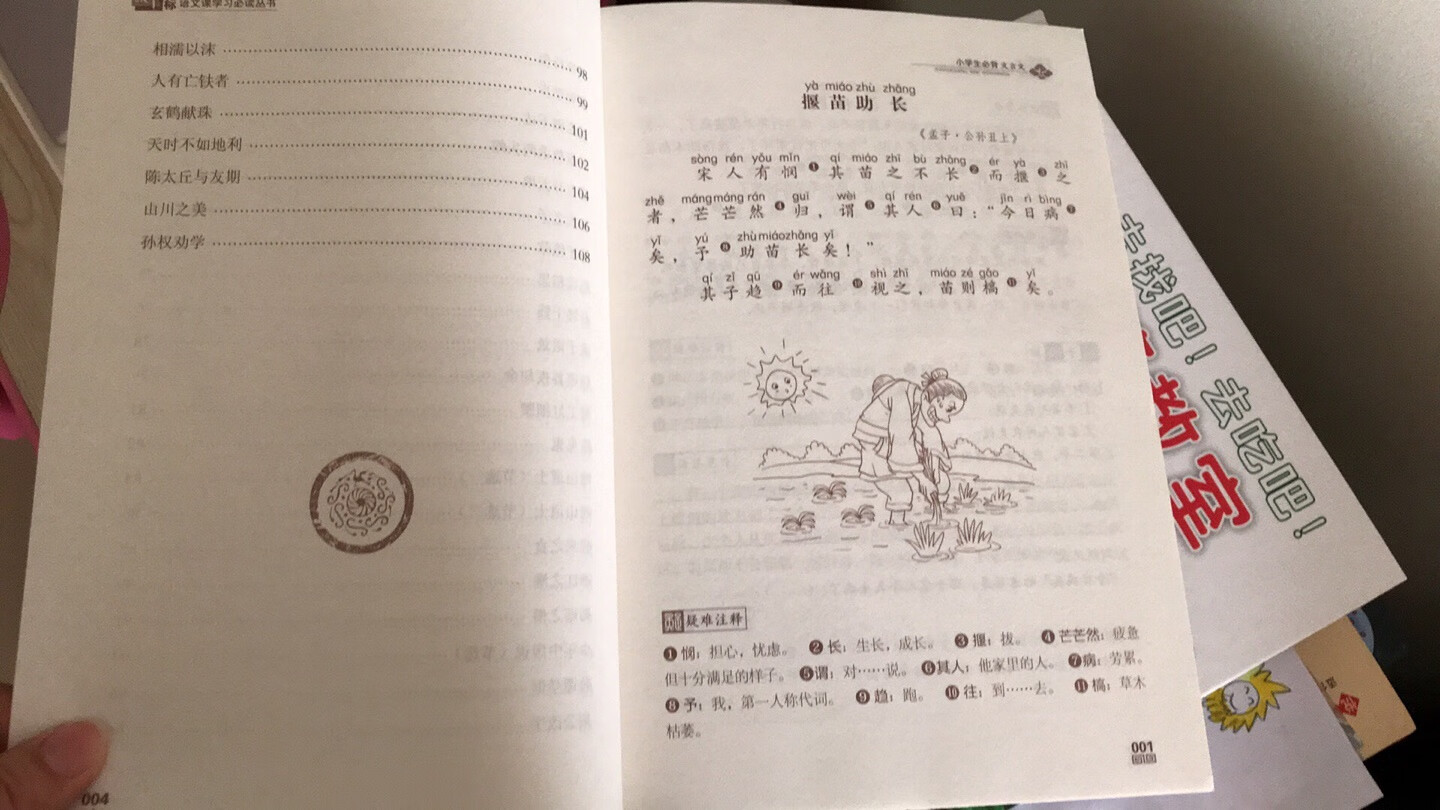 标 语文课学习必读丛书
相濡以沫 98
人有亡铁者 99
玄鹤献珠 101
天时不如地利 102
陈太丘与友期 104
山川之美 106
孙权劝学 108
004
小学生必背文言文
yà miáo zhù zhǎng
揠苗助长
《孟子·公孙丑上》
sòng rén yǒu mǐn qí miáo zhī bù zhǎng ér yà zhī
宋人有悯❶其苗之不长❷而揠❸之
zhě máng máng rán guī wèi qí rén yuē jīn rì bìng
者，芒芒然❹归，谓❺其人❻曰：“今日病❼
yǐ yú zhù miáo zhǎng yǐ
矣，予❽助苗长矣！”
qí zǐ qū ér wǎng shì zhī miáo zé gǎo yǐ
其子趋❾而往❿视之，苗则槁⓫矣。
疑难注释
❶悯：担心，忧虑。 ❷长：生长，成长。 ❸揠：拔。 ❹芒芒然：疲惫
但十分满足的样子。 ❺谓：对……说。 ❻其人：他家里的人。 ❼病：劳累。
❽予：我，第一人称代词。 ❾趋：跑。 ❿往：到……去。 ⓫槁：草木
枯萎。
001
去找吧！去吃吧！
教室